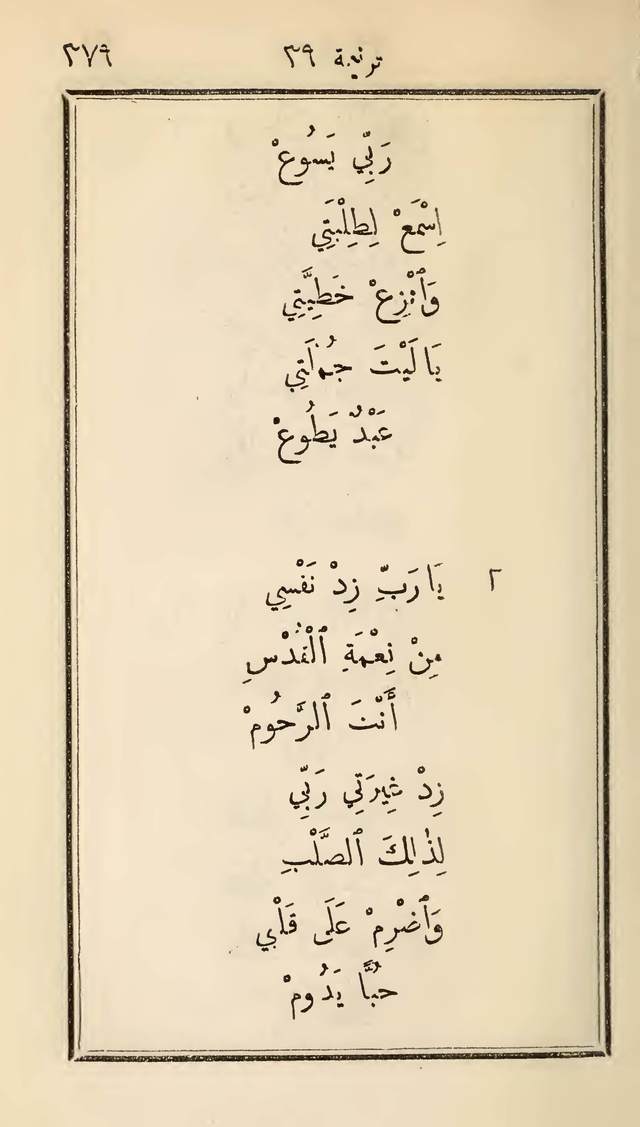 ترنيمة ٣٩ ٣٧٩
رَبِّي يَسُوعْ
اِسْمَعْ لِطِلْبَتِي
وَٱنْزِعْ خَطِيَّتِي
يَا لَيْتَ جُمْلَتِي
عَبْدٌ يَطُوعْ
٢ يَا رَبِّ زِدْ نَفْسِي
مِنْ نِعْمَةِ ٱلْقُدْسِ
أَنْتَ ٱلرَّحُومْ
زِدْ غِيرَتِي رَبِّي
لِذٰلِكَ ٱلصَّلْبِ
وَٱضْرِمْ عَلَى قَلْبِي
حُبًّا يَدُومْ